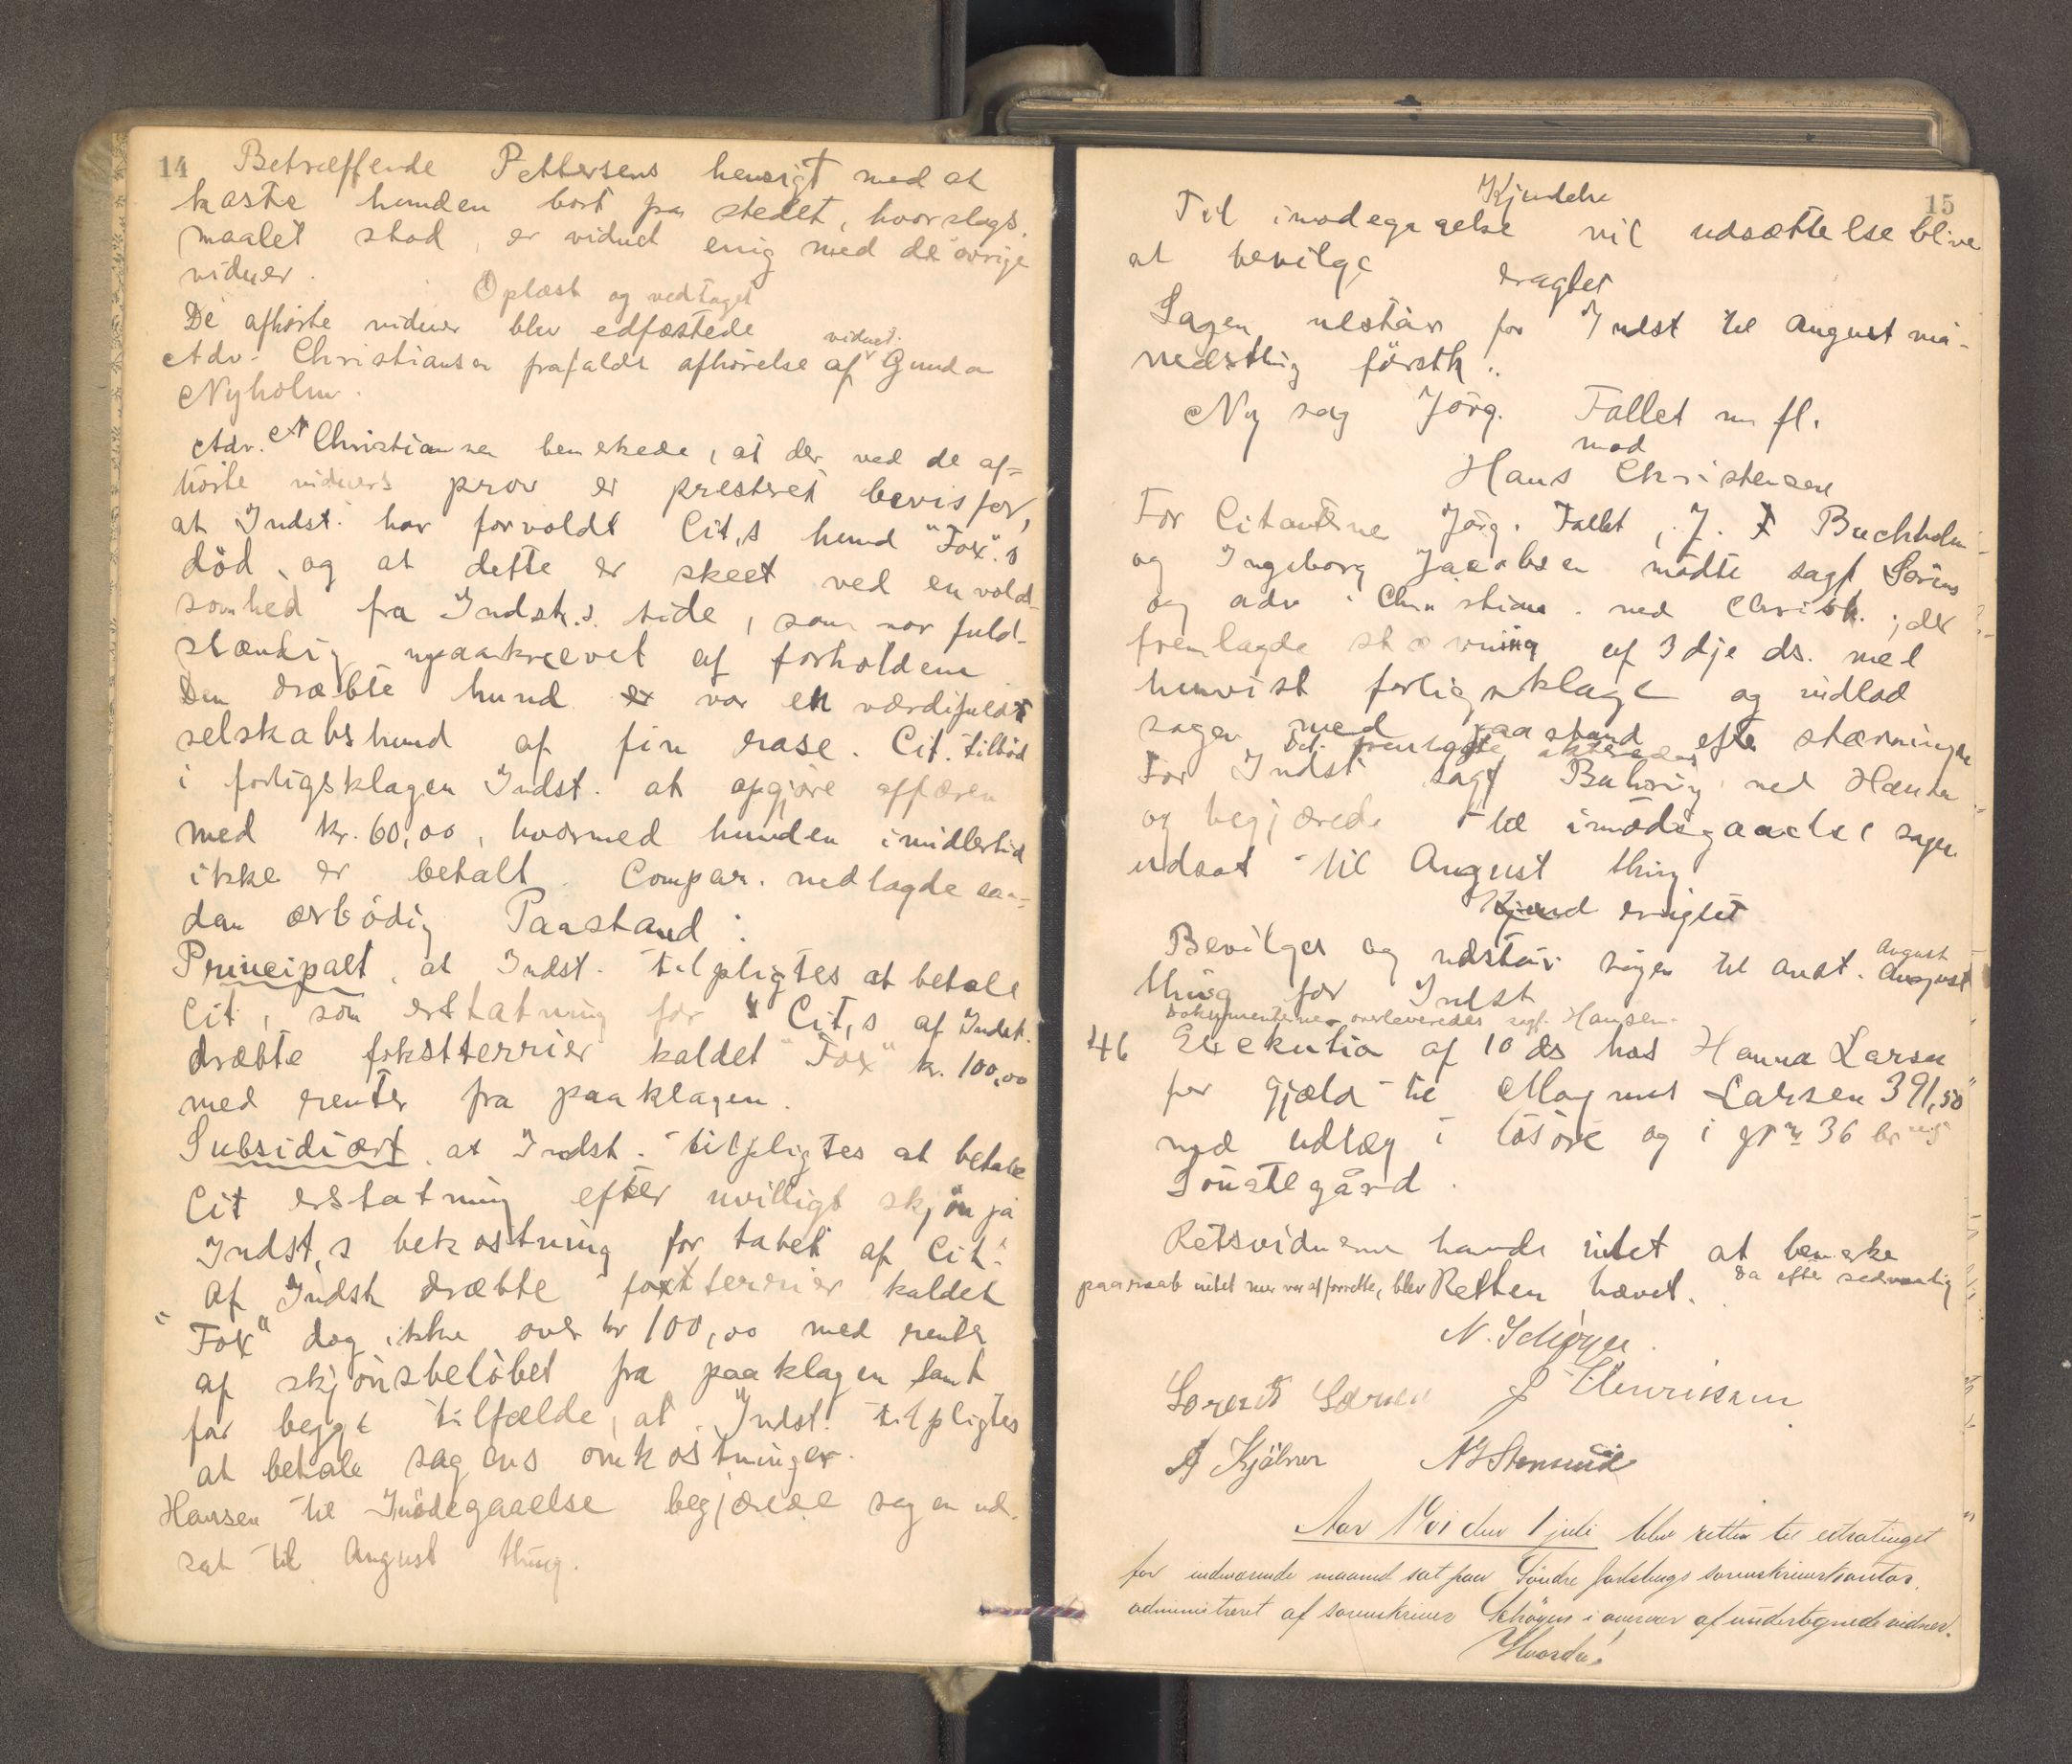 14
Betræffende Pettersens hensigt med at
kaste hunden bort fra stedet, hvor slags-
maalet stod, er vidnet enig med de övrige
vidner.
Oplæst og vedtaget
De afhörte vidner blev edfæstede
Adv. Christiansen frafaldt afhörelse af vidnet Gunda
Nyholm.
Adv. Christiansen bemerkede, at der ved de af-
hörte vidners prov er presteret bevis for,
at Indst. har forvoldt Cit,s hund "Fox".s
död, og at dette er skeet ved en vold-
somhed fra Indst.s side, som var fuld-
stændig upaakrævet af forholdene
Den dræbte hund var en værdifuld
selskabshund af fin rase. Cit. tilböd
i forligsklagen Indst. at opgjöre affæren
med kr. 60,00, hvormed hunden imidlertid
ikke er betalt. Compar. nedlagde saa-
dan ærbödig Paastand:
Principalt, at Indst. tilpligtes at betale
Cit, som erstatning for Cit,s af Indst.
dræbte foksterrier kaldet "Fox" kr. 100,00
med renter fra paaklagen.
Subsidiært, at Indst. tilpligtes at betale
Cit erstatning efter uvilligt skjön på
Indst,s bekostning for tabet af Cit.
af Indst dræbte foxterrier kaldet
"Fox" dog ikke over kr 100,00 med renter
af skjönsbelöbet fra paaklagen samt
for begge tilfælde, at Indst. tilpligtes
at betale sagens omkostninger.
Hansen til Imödegaaelse begjærede sagen ud-
sat til August thing.
15
Kjendelse
Til imödegaaelse vil udsættelse blive
at bevilge
eragtet
Sagen udstår for Indst til august må-
nedsthing förstk.
Ny sag Jörg. Fallet m fl.
mod
Hans Christensen
For Citanterne Jörg. Fallet, J. Buchholm
og Ingeborg Jacobsen mödte sagf Sörens
og adv. Christians. ved Christ.; der
fremlagde stævning af 3dje ds. med
henvist forligsklage og indlod
sagen med paastand efter stævningen
Det fremlagte akteredes
For Indst sagf Buhring ved Hansen
og begjærede til imödegaaelse sagen
udsat til August thing
eragtet
Bevilges og udstår sagen til anst. August
thing for Indst
Dokumenterne overleveredes sagf. Hansen.
46 Exekution af 10 ds hos Hanna Larsen
for gjæld til Magnus Larsen 391,50
med udlæg i lösöre og i gr no 36 br no 5
Sönstegård.
Retsvidnerne havde intet at bemerke
da efter sedvanlig
paaraab intet mer var at forrette, blev Retten hævet.
N. Schöyen.
Lorents Larsen J Henriksen
A Kjölner
Aar 1901 den 1 juli blev retten til extratinget
for indeværende maaned sat paa Söndre Jarlsbergs sorenskriverkontor,
administreret af sorenskriver Schöyen i overvær af undertegnede vidner.
Hvorda: